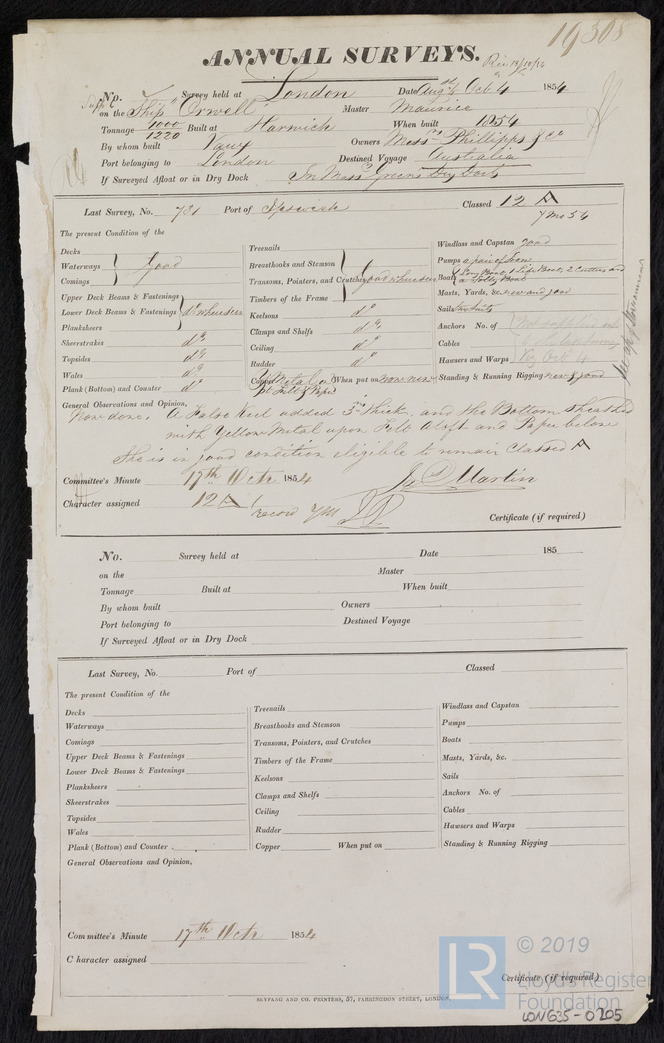 19308
ANNUAL SURVEYS.
No. Survey held at London Date Augst Octr 4 1854
on the Ship "Orwell" Master Maurice
Tonnage 1000 1220 Built at Harwich When built 1854
By whom built Vaux Owners Messrs Phillipps & Co
Port belonging to London Destined Voyage Australia
If Surveyed Afloat or in Dry Dock In Messrs Greens Dry Dock
Last Survey, No. 731 Port of Ipswich Classed 12 A
7 Mo 54
The present Condition of the
Decks
Waterways good
Comings
Upper Deck Beams & Fastenings
Lower Deck Beams & Fastenings do where seen
Planksheers
Sheerstrakes do
Topsides do
Wales do
Plank (Bottom) and Counter do
Treenails
Breasthooks and Stemson
Transoms, Pointers, and Crutches good where seen
Timbers of the Frame
Keelsons do
Clamps and Shelfs do
Ceiling do
Rudder do
Copper Y Metal on When put on now new
Felt & Paper
Windlass and Capstan good
Pumps a pair of Iron
Boats 1 Long Boat, 1 Life Boat, 2 Cutters and
a Jolly Boat
Masts, Yards, &c. new and good
Sails two suits
Anchors No. of
Cables
Hawsers and Warps
Standing & Running Rigging new & good
General Observations and Opinion,
Now done. A False Keel added 3 in thick, and the Bottom sheathed
with Yellow Metal upon Felt Aloft and Paper below
She is in good condition eligible to remain Classed A
Committee's Minute 17th Octr 1854 Js Martin
Character assigned 12 A 1
record 7M
Certificate (if required)
No. Survey held at Date 185
on the Master
Tonnage Built at When built
By whom built Owners
Port belonging to Destined Voyage
If Surveyed Afloat or in Dry Dock
Last Survey, No. Port of Classed
The present Condition of the
Decks
Waterways
Comings
Upper Deck Beams & Fastenings
Lower Deck Beams & Fastenings
Planksheers
Sheerstrakes
Topsides
Wales
Plank (Bottom) and Counter
Treenails
Breasthooks and Stemson
Transoms, Pointers, and Crutches
Timbers of the Frame
Keelsons
Clamps and Shelfs
Ceiling
Rudder
Copper When put on
Windlass and Capstan
Pumps
Boats
Masts, Yards, &c.
Sails
Anchors No. of
Cables
Hawsers and Warps
Standing & Running Rigging
General Observations and Opinion,
Committee's Minute 17th Octr 1854
Character assigned
Certificate (if required)
SEYFANG AND CO. PRINTERS, 57, FARRINGDON STREET, LONDON.
LR © 2019
Lloyd's Register
Foundation
LON635-0205